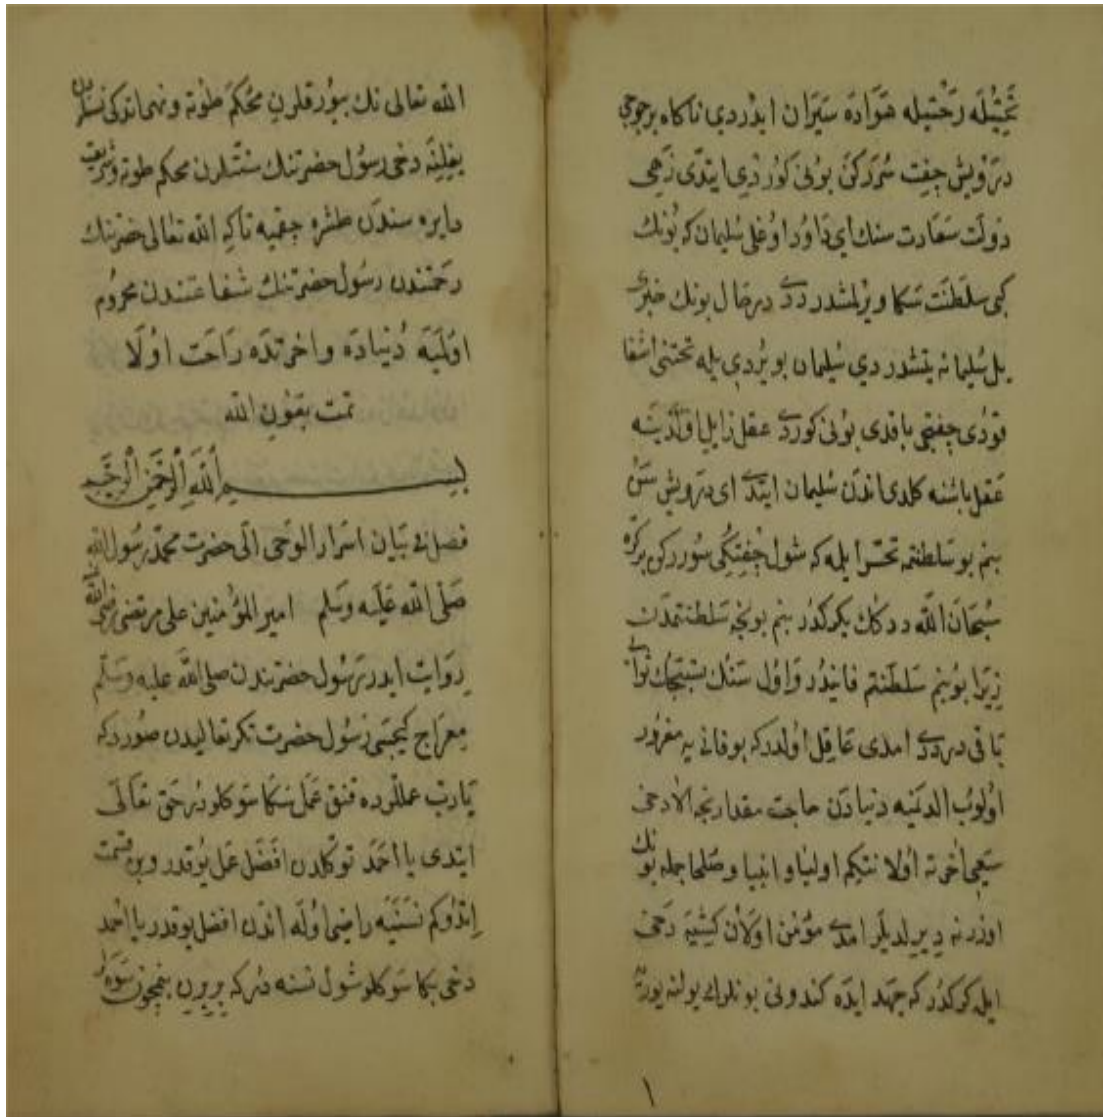 تختيله رختيله هواده سيران ايدردي ناكاه بر جوجي
درويش جفت سرركن بوني كوردي ايتدي زهي
دولت سعادت سنك اي داود اوغلي سليمان كه بونك
كبي سلطنت سكا ويرلمشدر ددي درحال بونك خبري
يل سليمانه يتشدردي سليمان بويردي يله تختني اشغا
قودي جفتجي باقدي بوني كوردي عقل زايل اولدي ينه
عقل باشنه كلدي اندن سليمان ايتدي اي درويش سن
بنم بو سلطنتمه تحسر ايلمه كه شول جفتكي سوررken بر كره
سبحان الله ددكك يكركدر بنم بونجه سلطنتمدن
زيرا بو بنم سلطنتم فانيدر و اول سنك تسبيحك ثوابي
باقي در ددي امدي عاقل اولدر كه بو فاني يه مغرور
اولوب الدنميه دنيادن حاجت مقدارنجه الا دخي
سعي اخرته اولا نتكيم اوليا و انبيا و صلحا جمله بونك
اوزرنه ديرلديلر امدي مؤمن اولان كشيه دخي
ايله كركدر كه جهد ايده كندوني بونلرك يولنه يوريه
الله تعالى نك بيورقلرن محكم طوته و نهي اتدكي نسنلردن
يغلنه دخي رسول حضرتنك سنتلرن محكم طوته و شريعت
دايره سندن طشره جقميه تا كه الله تعالى حضرتنك
رحمتندن رسول حضرتنك شفاعتندن محروم
اولميه دنياده و اخرتده راحت اولا
تمت بعون الله
بسم الله الرحمن الرحيم
فصل في بيان اسرار الوحى الى حضرت محمد رسول الله
صلى الله عليه وسلم امير المؤمنين علي مرتضى رضى الله عنه
روايت ايدر رسول حضرتندن صلى الله عليه وسلم
معراج كيجسي رسول حضرت تكر تعاليدن صوردى كه
يا رب عمللرده قنقى عمل سكا سوكلودر حق تعالى
ايتدى يا احمد توكلدن افضل عمل يوقدر و بن قسمت
اتدوكم نسنيه راضي اوله اندن افضل يوقدر يا احمد
دخي بكا سوكلو شول نسنه در كه بربرين بنمجون سوه لر